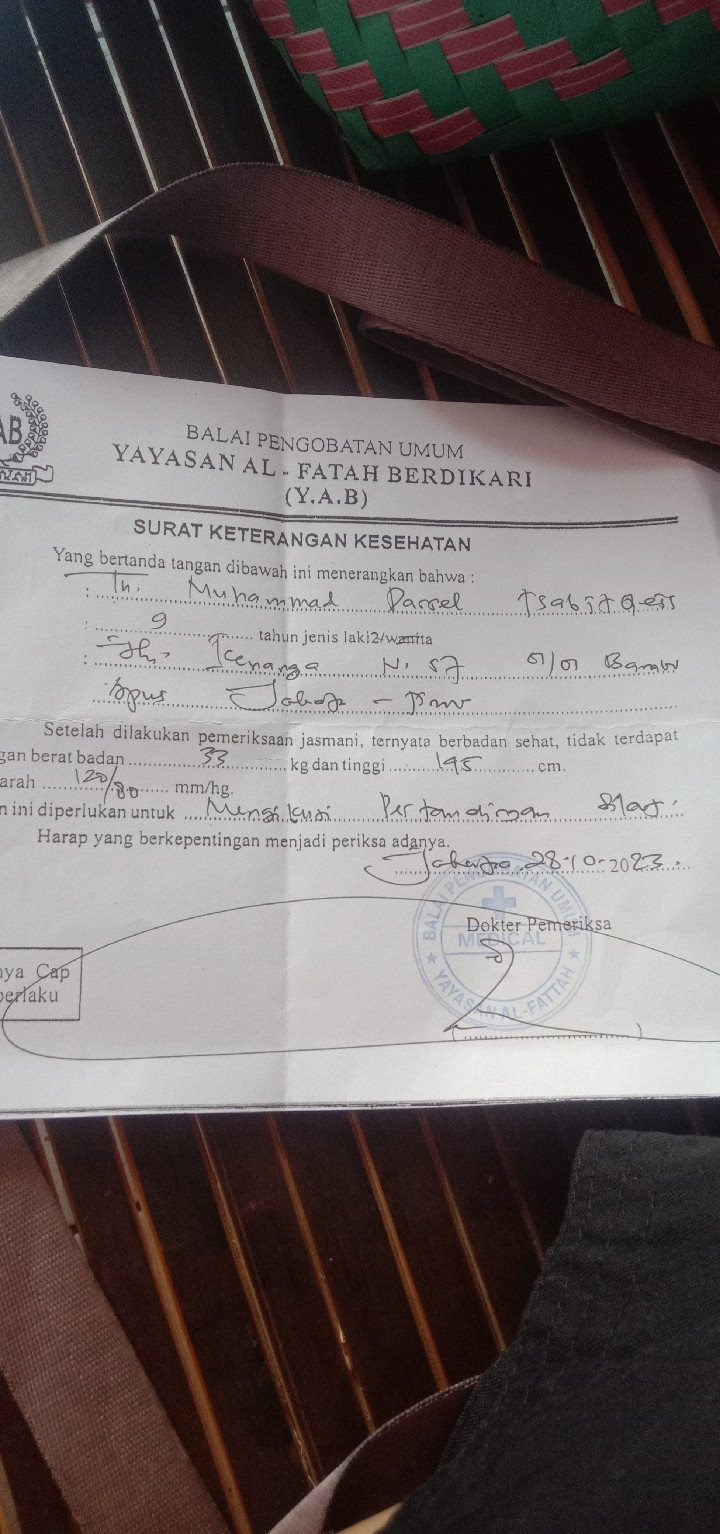 AB
BALAI PENGOBATAN UMUM
YAYASAN AL - FATAH BERDIKARI
(Y.A.B)
SURAT KETERANGAN KESEHATAN
Yang bertanda tangan dibawah ini menerangkan bahwa :
: Tn. Muhammad
: 9 tahun jenis laki2/wanita
: Jln. Kenanga N. 57
Setelah dilakukan pemeriksaan jasmani, ternyata berbadan sehat, tidak terdapat
gan berat badan 33 kg dan tinggi 145 cm.
arah 120/80 mm/hg.
n ini diperlukan untuk Mengikuti Pertandingan
Harap yang berkepentingan menjadi periksa adanya.
28-10-2023.
Dokter Pemeriksa
BALAI PENGOBATAN UMUM
MEDICAL
YAYASAN AL-FATTAH
nya Cap
berlaku